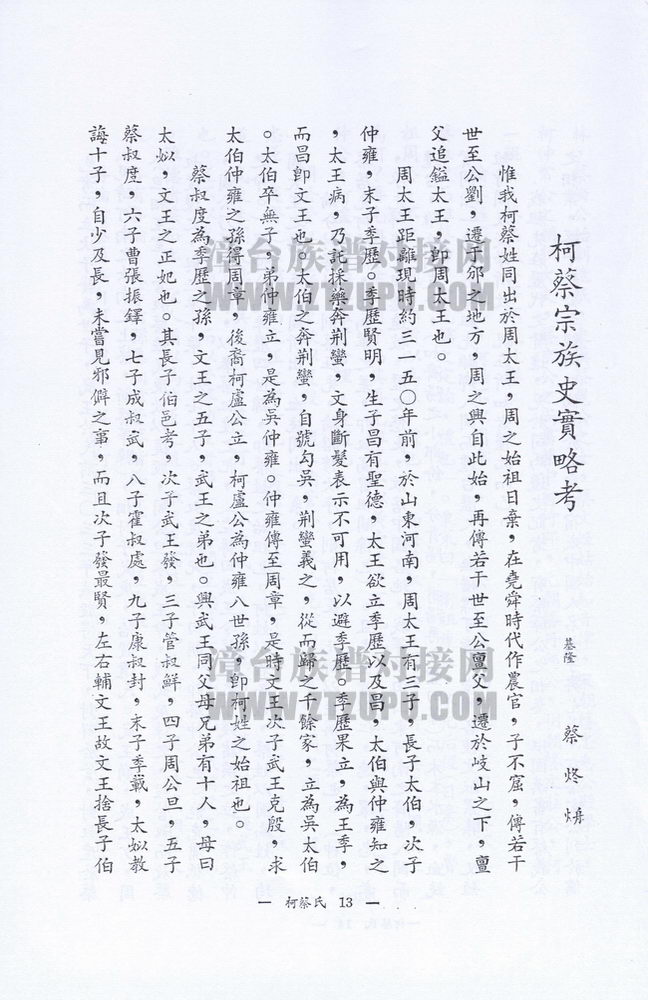 柯蔡宗族史實略考
基隆 蔡炵炿
惟我柯蔡姓同出於周太王，周之始祖日棄，在堯舜時代作農官，子不窋，傳若干
世至公劉，遷于邠之地方，周之興自此始，再傳若干世至公亶父，遷於岐山之下，亶
父追鎰太王，卽周太王也。
周太王距離現時約三一五〇年前，於山東河南，周太王有三子，長子太伯，次子
仲雍，末子季歷。季歷賢明，生子昌有聖德，太王欲立季歷以及昌，太伯與仲雍知之
，太王病，乃託採藥奔荆蠻，文身斷髮表示不可用，以避季歷。季歷果立，為王季，
而昌卽文王也。太伯之奔荆蠻，自號勾吳，荆蠻義之，從而歸之千餘家，立為吳太伯
。太伯卒無子，弟仲雍立，是為吳仲雍。仲雍傳至周章，是時文王次子武王克殷，求
太伯仲雍之孫得周章，後裔柯盧公立，柯盧公為仲雍八世孫，卽柯姓之始祖也。
蔡叔度為季歷之孫，文王之五子，武王之弟也。與武王同父母兄弟有十人，母曰
太姒，文王之正妃也。其長子伯邑考，次子武王發，三子管叔鮮，四子周公旦，五子
蔡叔度，六子曹張振鐸，七子成叔武，八子霍叔處，九子康叔封，末子季載，太姒教
誨十子，自少及長，未嘗見邪僻之事，而且次子發最賢，左右輔文王故文王捨長子伯
— 柯蔡氏 13 —
漳台族谱对接网
WWW.ZTZUPU.COM
漳台族谱对接网
WWW.ZTZUPU.COM